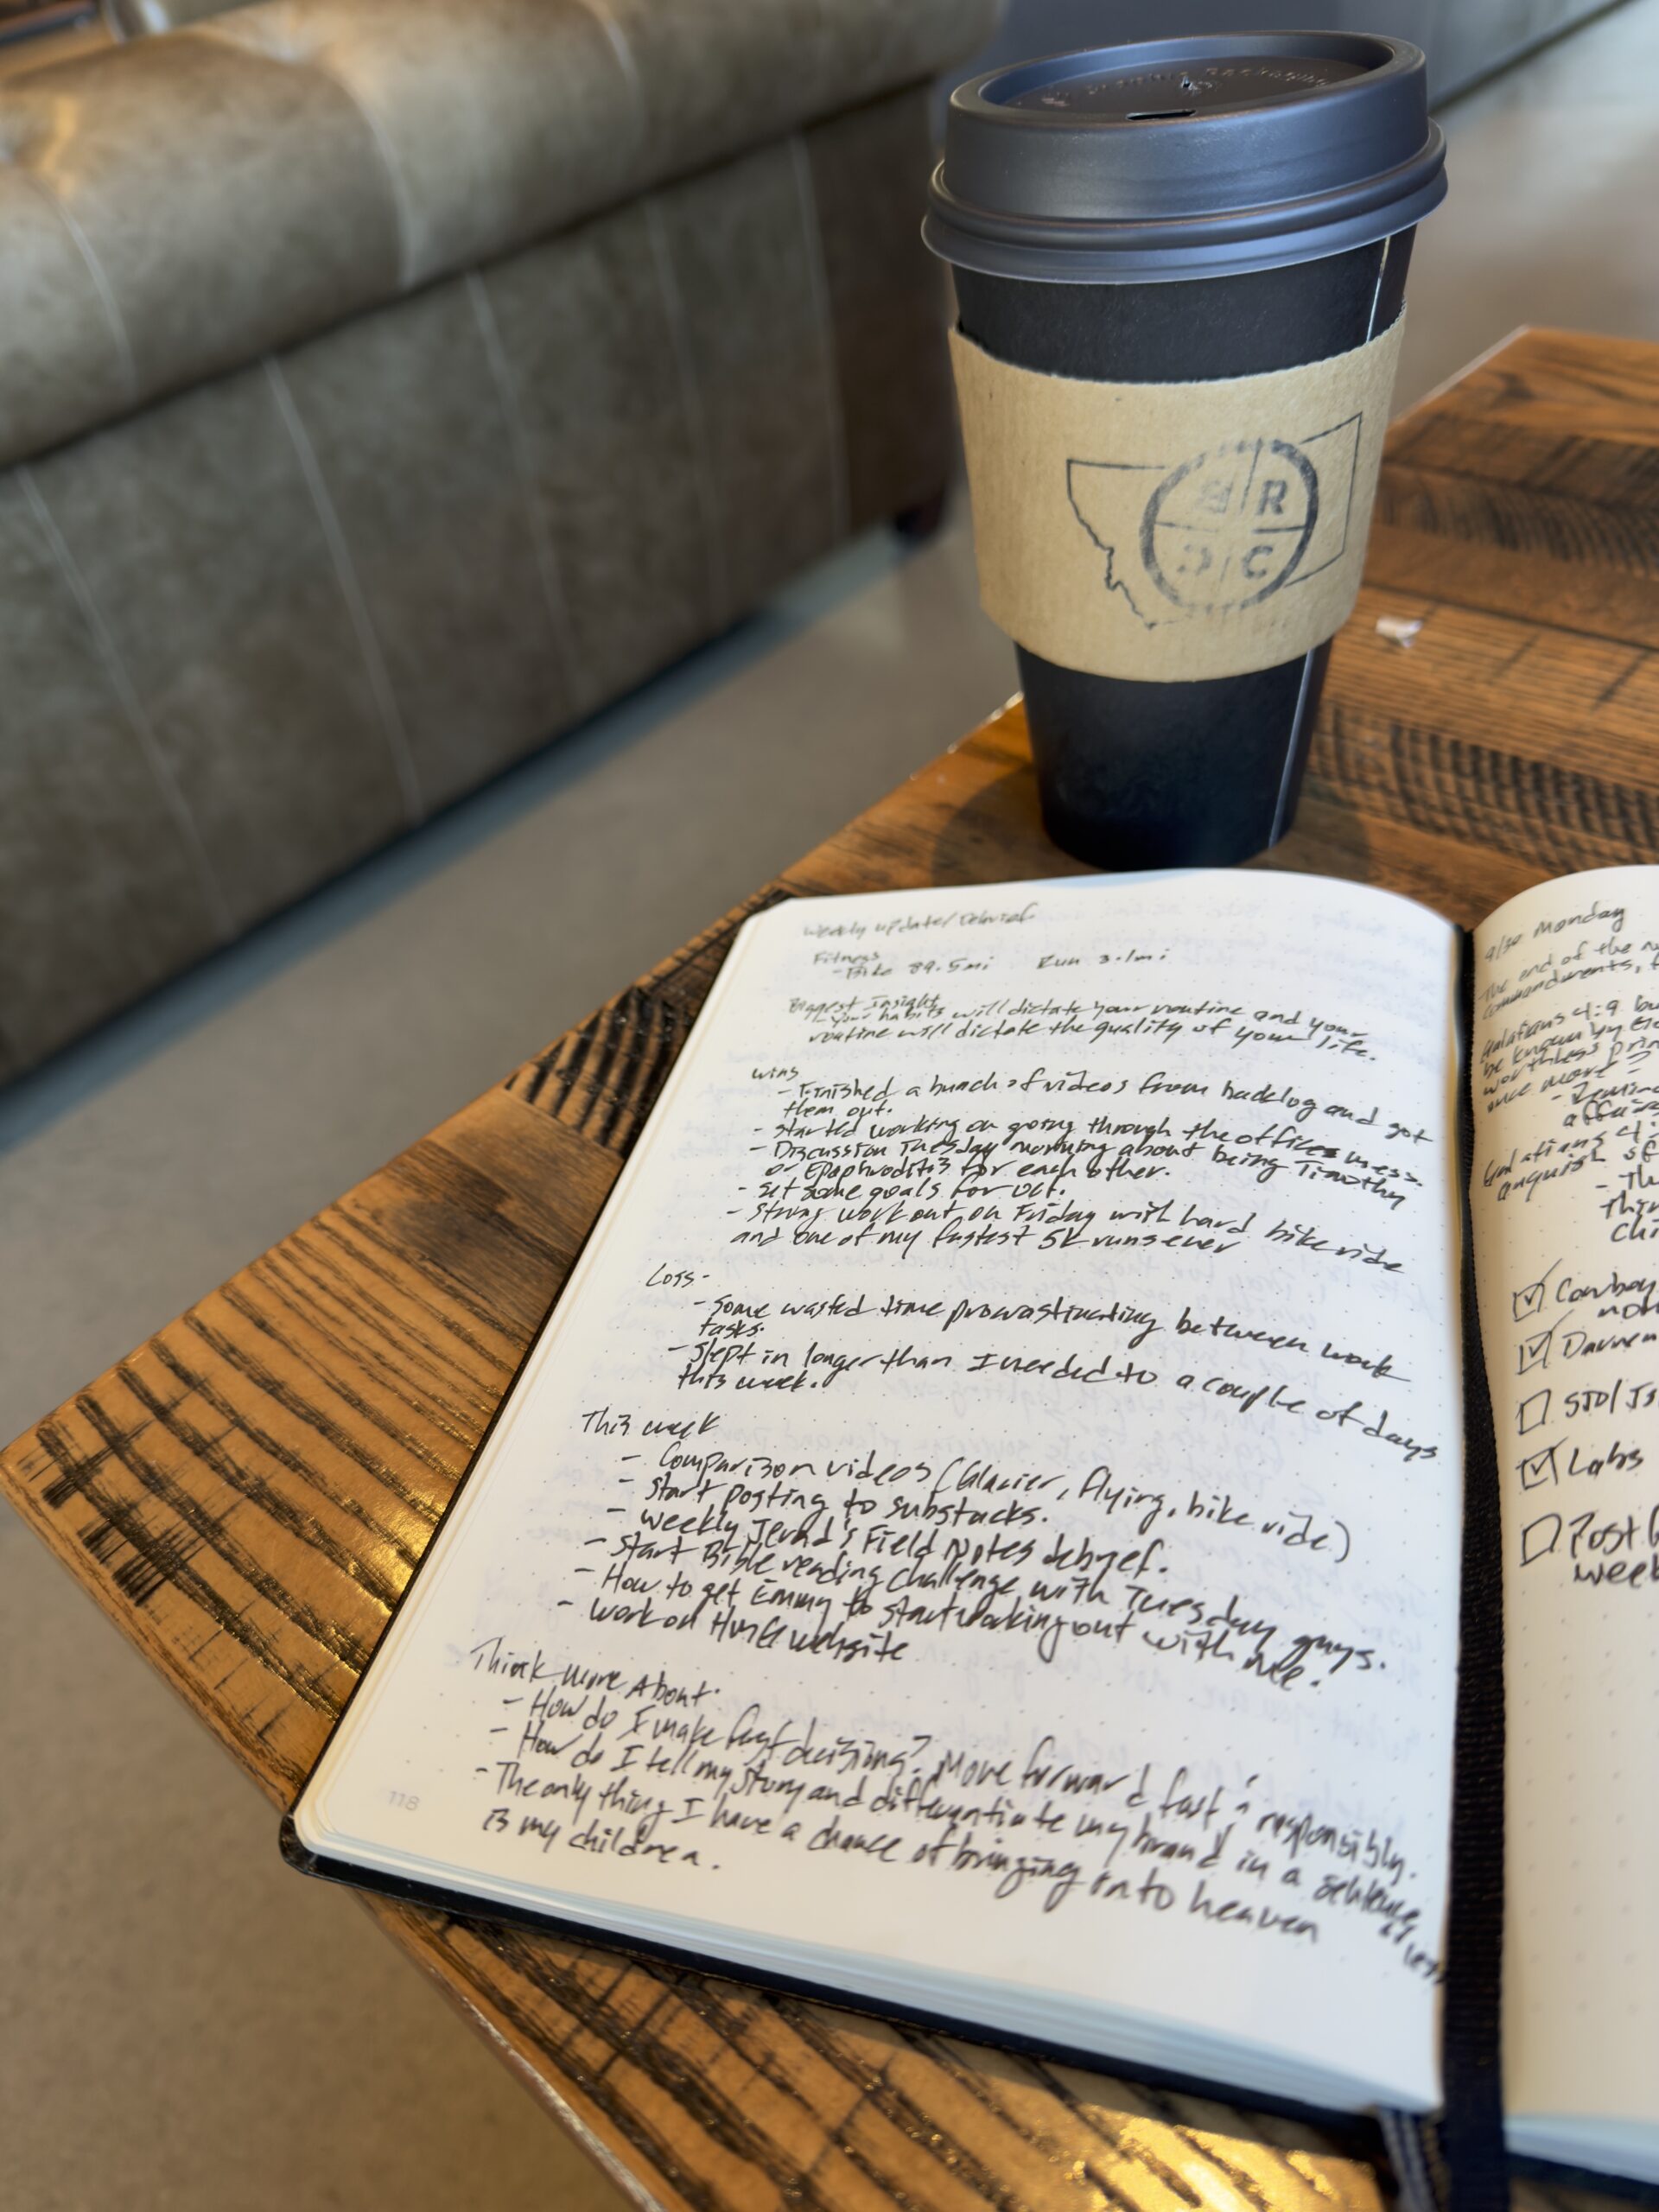 R
C
Weekly update/Debrief
Fitness
- Bike 89.5mi Run 3.1mi
Biggest Insight
- Your habits will dictate your routine and your
routine will dictate the quality of your life.
Wins
- Finished a bunch of videos from backlog and got
them out.
- Started working on going through the office mess.
- Discussion Tuesday morning about being Timothy
or Epaphroditis for each other.
- Set some goals for Oct.
- Strong workout on Friday with hard bike ride
and one of my fastest 5k runs ever
Loss-
- Some wasted time procrastinating between work
tasks.
- Slept in longer than I needed to a couple of days
this week.
This week
- Comparison videos (Glacier, flying, bike ride)
- Start posting to substacks.
- Weekly Jerad's Field Notes debrief.
- Start Bible reading challenge with Tuesday guys.
- How to get Emmy to start working out with me.
- Work on website
Think more About.
- How do I make fast decisions? Move forward fast & responsibly.
- How do I tell my story and differentiate my brand in a sentence
or less
- The only thing I have a chance of bringing onto heaven
is my children.
118
9/30 Monday
The end of the
commandments,
Galatians 4:9
be known by
worthless
once more?
Galatians 4:
anguish
☑ Cowboy
☑ Darren
☐
☑ Labs
☐ Post
week